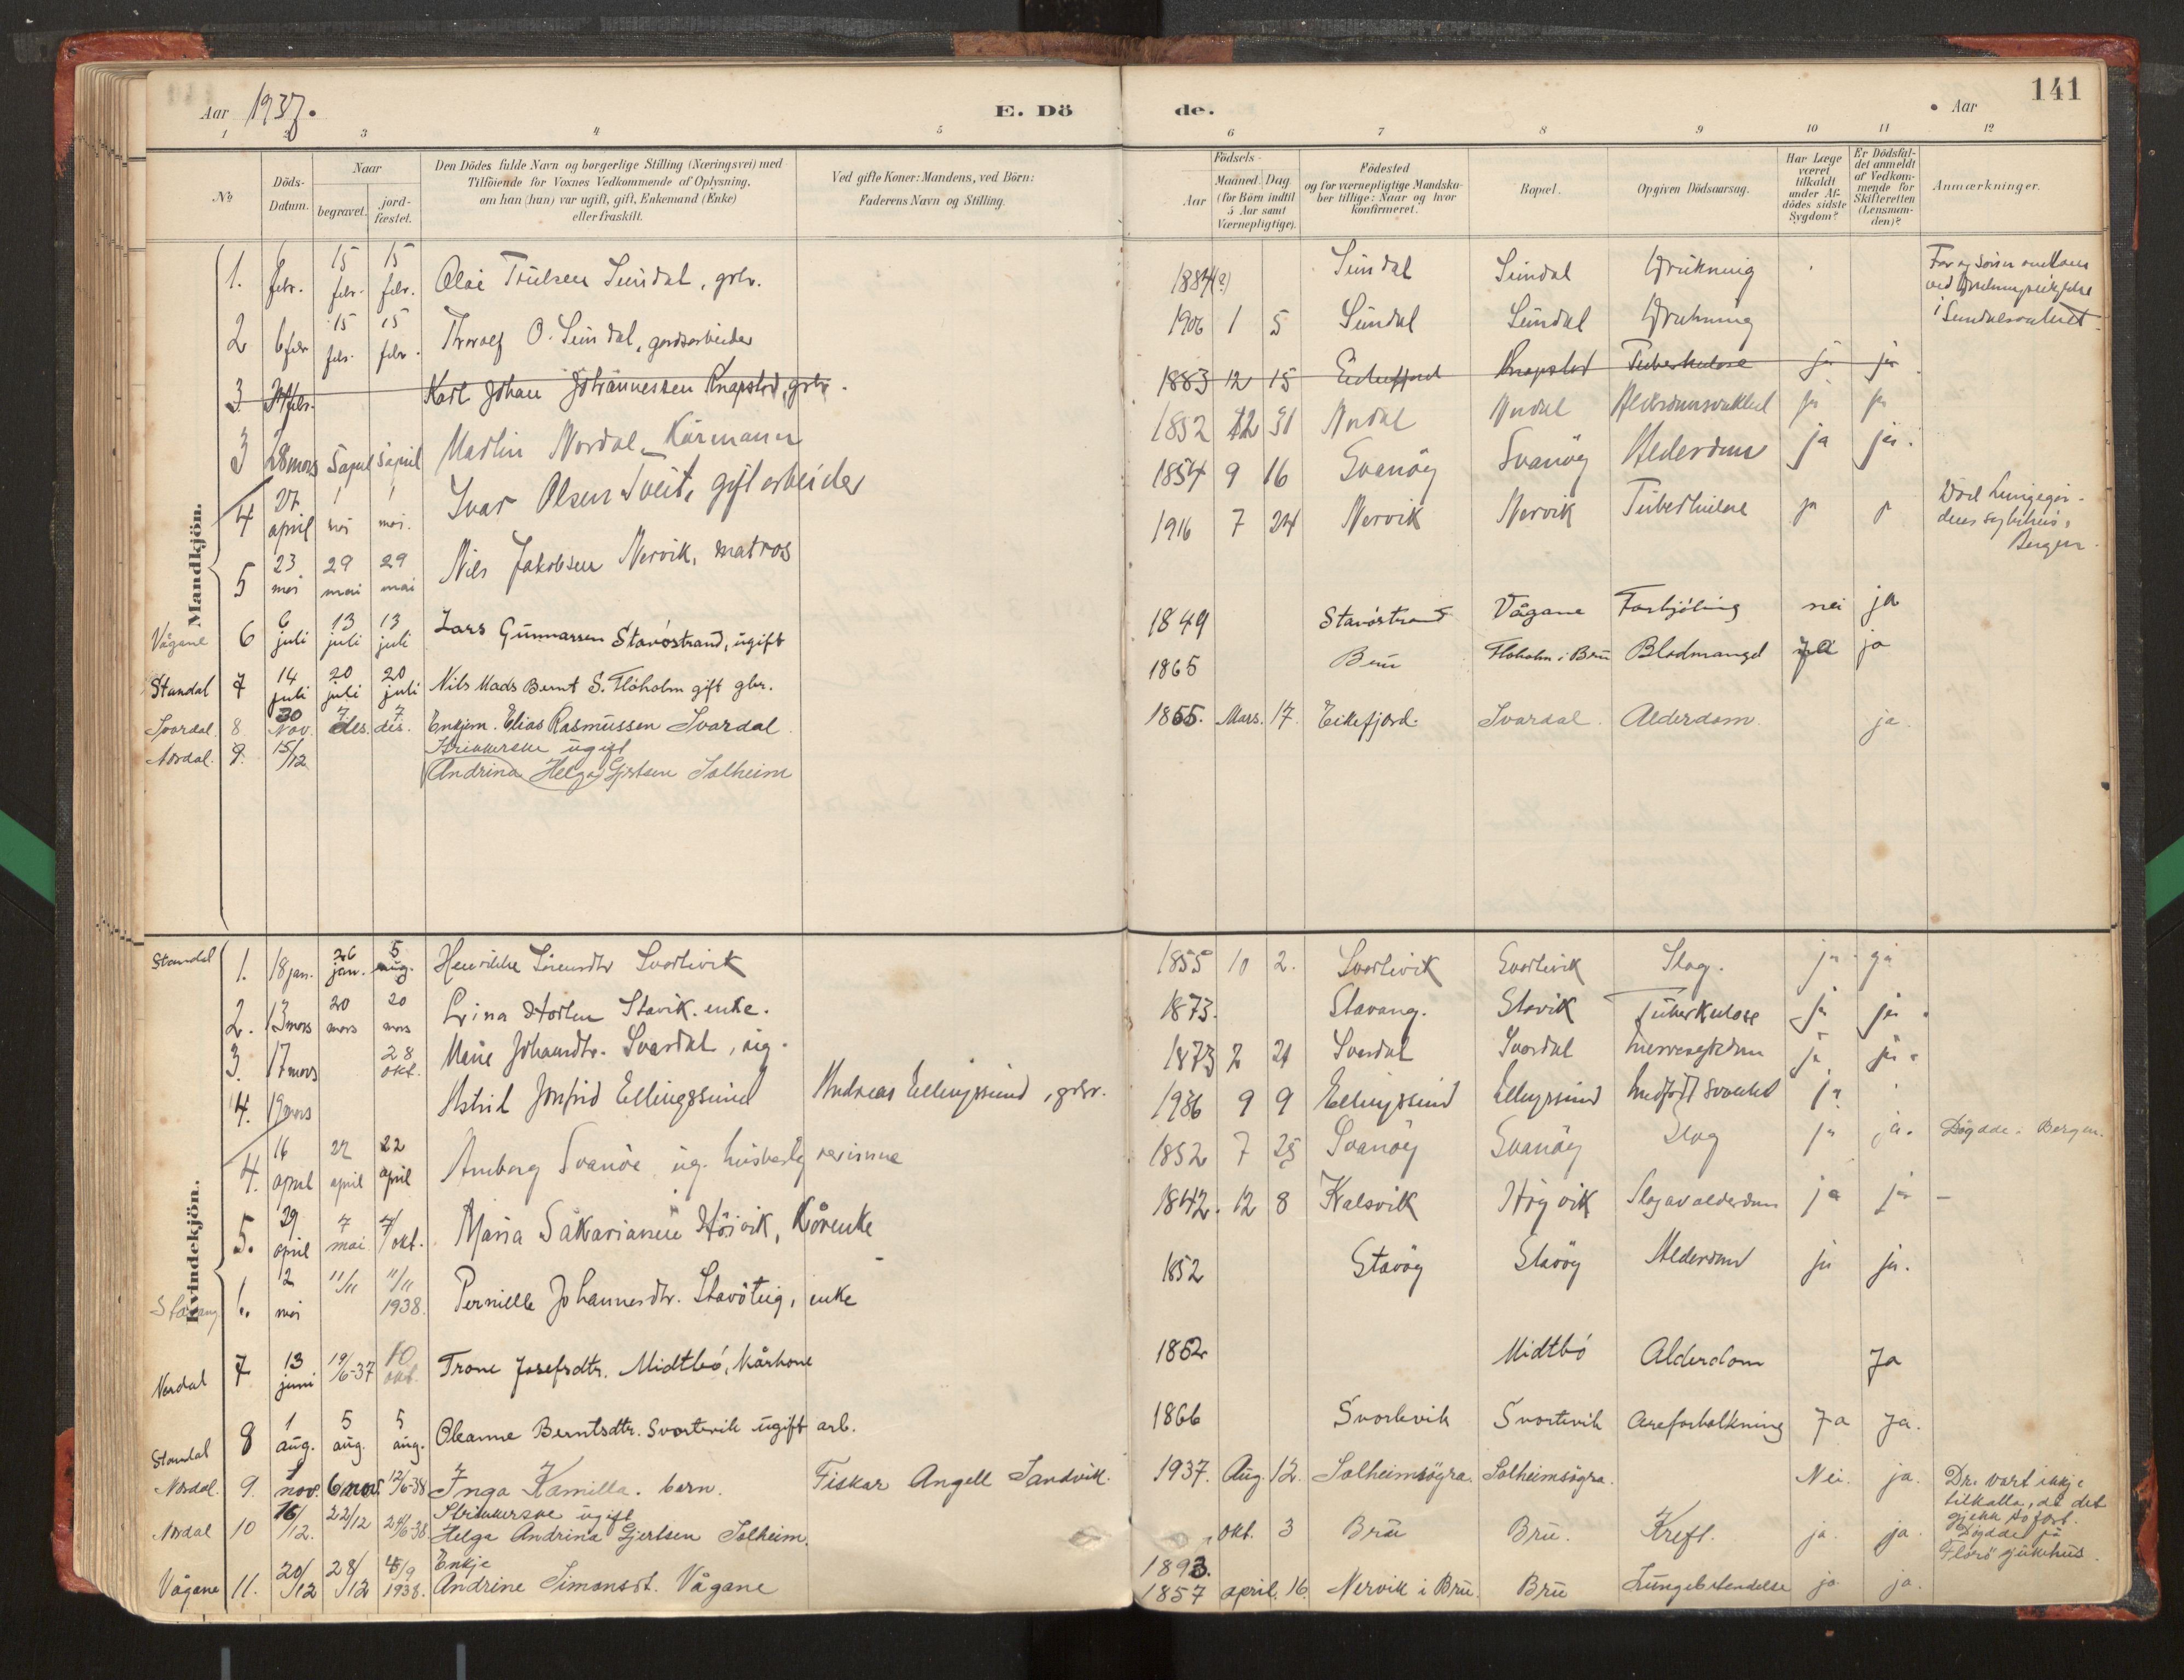 Aar 1937.
E. Dö
de.
Aar
141
1 2 3 4 5 6 7 8 9 10 11 12
No
Döds-Datum.
Naar
begravet.
jord-fæstet.
Den Dödes fulde Navn og borgerlige Stilling (Næringsvei) med
Tilföiende for Voxnes Vedkommende af Oplysning,
om han (hun) var ugift, gift, Enkemand (Enke)
eller fraskilt.
Ved gifte Koner: Mandens, ved Börn:
Faderens Navn og Stilling.
Födsels-
Aar
Maaned. Dag
(for Börn indtil
5 Aar samt
Værnepligtige).
Födested
og for værnepligtige Mandska-
ber tillige: Naar og hvor
konfirmeret.
Bopæl.
Opgiven Dödsaarsag.
Har Læge
været
tilkaldt
under Af-
dödes sidste
Sygdom?
Er Dödsfal-
det anmeldt
af Vedkom-
mende for
Skifteretten
(Lensman-
den)?
Anmærkninger.
Mandkjön.
1. 6 febr. 15 febr. 15 febr. Olai Sundal, grbr. 1884(?) Sundal Sundal Drukning
2 6 febr 15 febr. 15 febr. O. Sundal, gardsarbeider 1906 1 5 Sundal Sundal Drukning
3 Karl Johan Johannessen Knapstad, grbr. 1883 12 15 Knapstad Tuberkulose ja ja
3 28 mars 5 april 5 april Martin Nordal Kårmann 1852 12 31 Nordal Nordal Alderdomsvakkel ja ja
4 27 april 1 mai 1 mai. Ivar Olsen Tveit, gift arbeider 1854 9 16 Svanöy Svanöy Alderdom ja ja.
5 23 mai 29 mai 29 mai Nils Jakobsen Nervik, matros 1916 7 24 Nervik Nervik Tuberkulose ja
Bergen.
Vågane 6 6 juli 13 juli 13 juli Lars Gunnarsen Stavöstrand, ugift 1849 Stavöstrand Vågane Forkjöling nei ja
Standal 7 14 juli 20 juli 20 juli Nils Mads Bernt S. Flöholm gift gbr. 1865 Bru Floholm i Bru Blodmangel ja ja
Svardal. 8 30 Nov. 7 des. 7 des. Enkjem. Elias Rasmussen Svardal 1855. Mars. 17. Eikefjord. Svardal. Alderdom. ja.
Nordal. 9. 15/12 Strikkerske ugift
Andrina Helga Gjertsen Solheim
Kvindekjön.
Standal 1. 18 jan. 26 jan. 5 aug. Henrikke Sörensdtr Svortevik 1855 10 2. Svortevik Svortevik Slag. ja ja
2. 13 mars 20 mars 20 mars Stavik. enke. 1873. Stavang. Stavik Tuberkulose ja ja.
3. 17 mars 28 okt. Johansdtr. Svardal, ug. 1873 2 21 Svardal Svardal ja ja.
4. 19 mars Astrid Jonfrid Ellingssund Andreas Ellingssund, grbr. 1936 9 9 Ellingssund Ellingssund Medfödt svakhet ja
4. 16 april 22 april 22 april Amborg Svanöe ug. husbestyrerinne 1852 7 25 Svanöy Svanöy Slag ja ja. Dögdde i Bergen.
5. 29 april 7 mai 7/ okt. Maria Sakariassen Höivik, Kårenke 1842. 12 8 Kalsvik Höyvik Slag av alderdom ja ja
Stavang 6. 12 mai 11/11 11/11 1938. Pernille Johannesdtr. Stavöteig, enke 1852 Stavöy Stavöy Alderdom ja ja.
Nordal 7 13 juni 19/6-37 10 okt. Trone Josefsdtr. Midtbö, Kårkone 1862 Midtbö Alderdom Ja
Standal 8 1 aug. 5 aug. 5 aug. Oleanne Berntsdtr. Svortevik ugift arb. 1866 Svortevik Svortevik Areforkalkning Ja Ja.
Nordal. 9. 1 nov. 6 nov. 12/6-38 Inga Kamilla. barn. Fiskar Angell Sandvik. 1937. Aug. 12. Solheimsögra. Solheimsögra. Nei. ja. Dr. vart ikkje
tilkalla, då det
gjekk so fort.
Nordal 10 16/12. 22/12 24/6-38 Strikkerske ugift
Helga Andrina Gjertsen Solheim. 1893. okt. 3 Bru Bru. Kreft. ja. ja Dögdde på
Florö sjukehus.
Vågane 11. 20/12 28/12 4/9 1938. Enkje
Andrine Simonsdt. Vågane 1857 april. 16. Nervik i Bru. Bru Lungebetendelse ja ja.